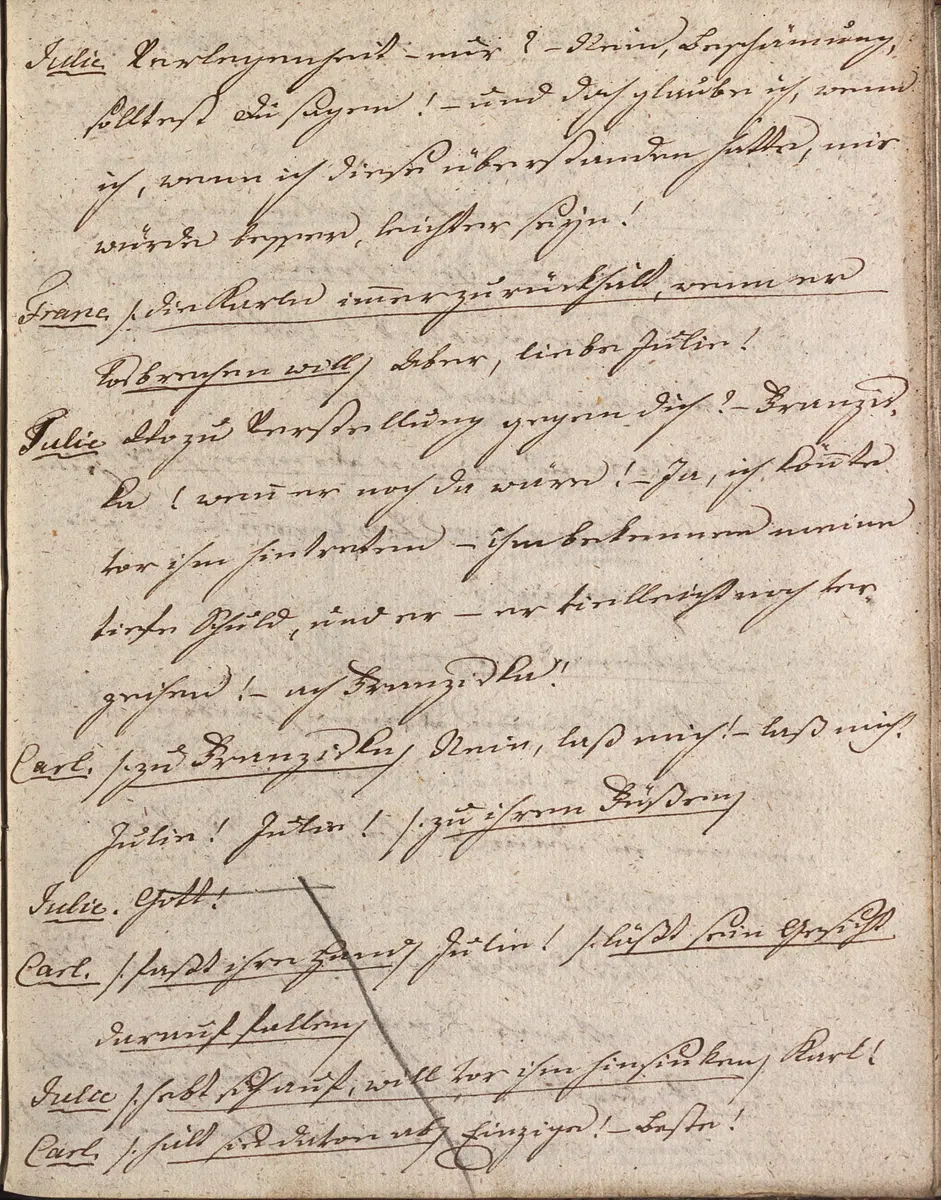 Julie. Verlegenheit – nur? – Nein, Beschämung,
solltest Du sagen! – und doch glaube ich, wenn
ich, wenn ich diese überstanden hätte, mir
würde besser, leichter seyn!
Franc. /: die Karln immer zurückhält, wenn er
losbrechen will / Aber, liebe Julie!
Julie Wozu Verstellung gegen dich? – Franzis-
ka! wenn er noch da wäre! – Ja, ich könnte
vor ihm hintreten – ihm bekennen meine
tiefe Schuld, und er – er vielleicht noch ver-
zeihen! – ach Franziska!!
Carl. /: zu Franziska / Nein, laß mich! – laß mich.
Julie! Julie! /: zu ihren Füßen /
Julie. Gott!
Carl. /: faßt ihre Hand / Julie! /: läßt sein Gesicht
darauf fallen /
Julie /: hebt sich auf, will vor ihm hinsinken / Karl!
Carl. /: hält sie davon ab / Einzige! – Beste!